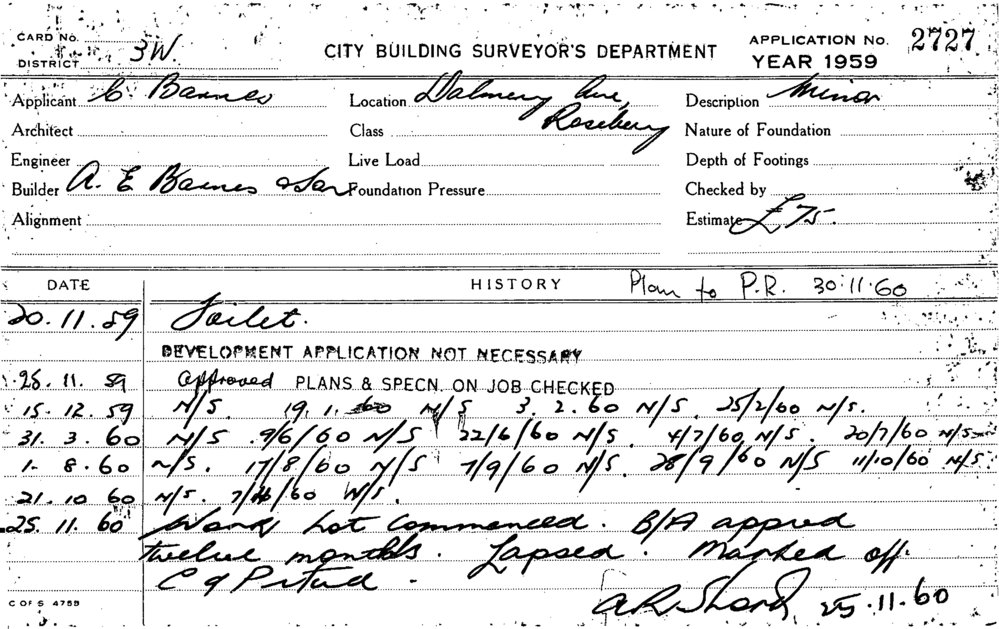 CARD No.
DISTRICT 3W.
CITY BUILDING SURVEYOR'S DEPARTMENT
APPLICATION No. 2727
YEAR 1959
Applicant C. Barnes
Location Dalmeny Ave,
Rosebery
Description Minor
Architect
Class
Nature of Foundation
Engineer
Live Load
Depth of Footings
Builder A. E Barnes & Son
Foundation Pressure
Checked by
Alignment
Estimate £75.
DATE HISTORY Plan to P.R. 30.11.60
20.11.59 Toilet.
DEVELOPMENT APPLICATION NOT NECESSARY
26.11.59 Approved PLANS & SPECN. ON JOB CHECKED
15.12.59 N/S. 19.1.60 N/S 3.2.60 N/S. 25/2/60 N/S.
31.3.60 N/S 9/6/60 N/S 22/6/60 N/S. 4/7/60 N/S. 20/7/60 N/S
1.8.60 N/S. 17/8/60 N/S 7/9/60 N/S. 28/9/60 N/S 11/10/60 N/S
21.10 60 N/S. 7/11/60 N/S.
25.11.60 Work not commenced. B/A appred
twelve months. Lapsed. Marked off.
25.11.60
C OF S 4759